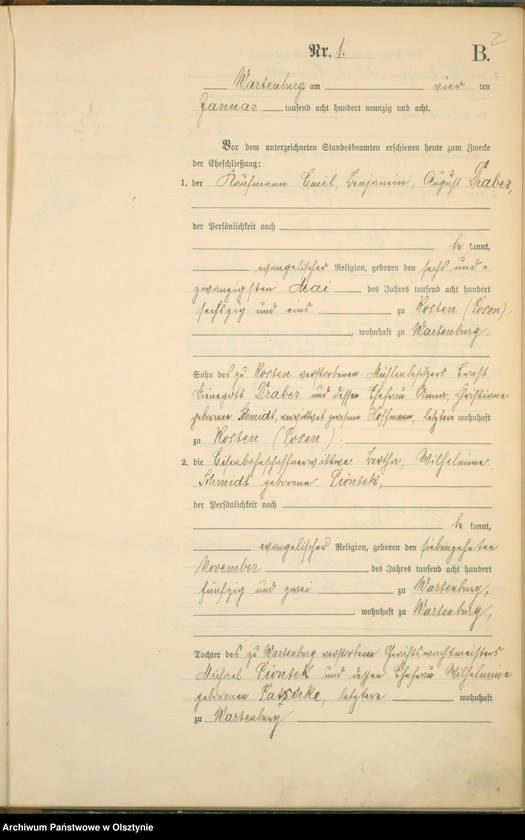 Nr. 1.
B.
2
Wartenburg, am vier ten
Januar tausend acht hundert neunzig und acht.
Vor dem unterzeichneten Standesbeamten erschienen heute zum Zwecke
der Eheschließung:
1. der Kaufmann Emil, Benjamin, August Draber,
der Persönlichkeit nach
be kannt,
evangelischer Religion, geboren den sechs und=
zwanzigsten Mai des Jahres tausend acht hundert
sechszig und eins zu Kosten (Posen),
, wohnhaft zu Wartenburg.
Sohn des zu Kosten verstorbenen Mühlenbesitzers Ernst
Draber und dessen Ehefrau Anna, Christiane
geborene Schmidt, verwittwet gewesene Hoffmann, letztere wohnhaft
zu Kosten (Posen).
2. die Eisenbahnschaffnerwittwe Bertha, Wilhelmine
Schmidt geborene Piontek,
der Persönlichkeit nach
be kannt,
evangelischer Religion, geboren den siebenzehnten
November des Jahres tausend acht hundert
fünfzig und zwei zu Wartenburg,
, wohnhaft zu Wartenburg,
Tochter des zu Wartenburg verstorbenen Gerichtswachtmeisters
Michael Piontek und dessen Ehefrau Wilhelmine
geborenen Patschke, letztere wohnhaft
zu Wartenburg
Archiwum Państwowe w Olsztynie